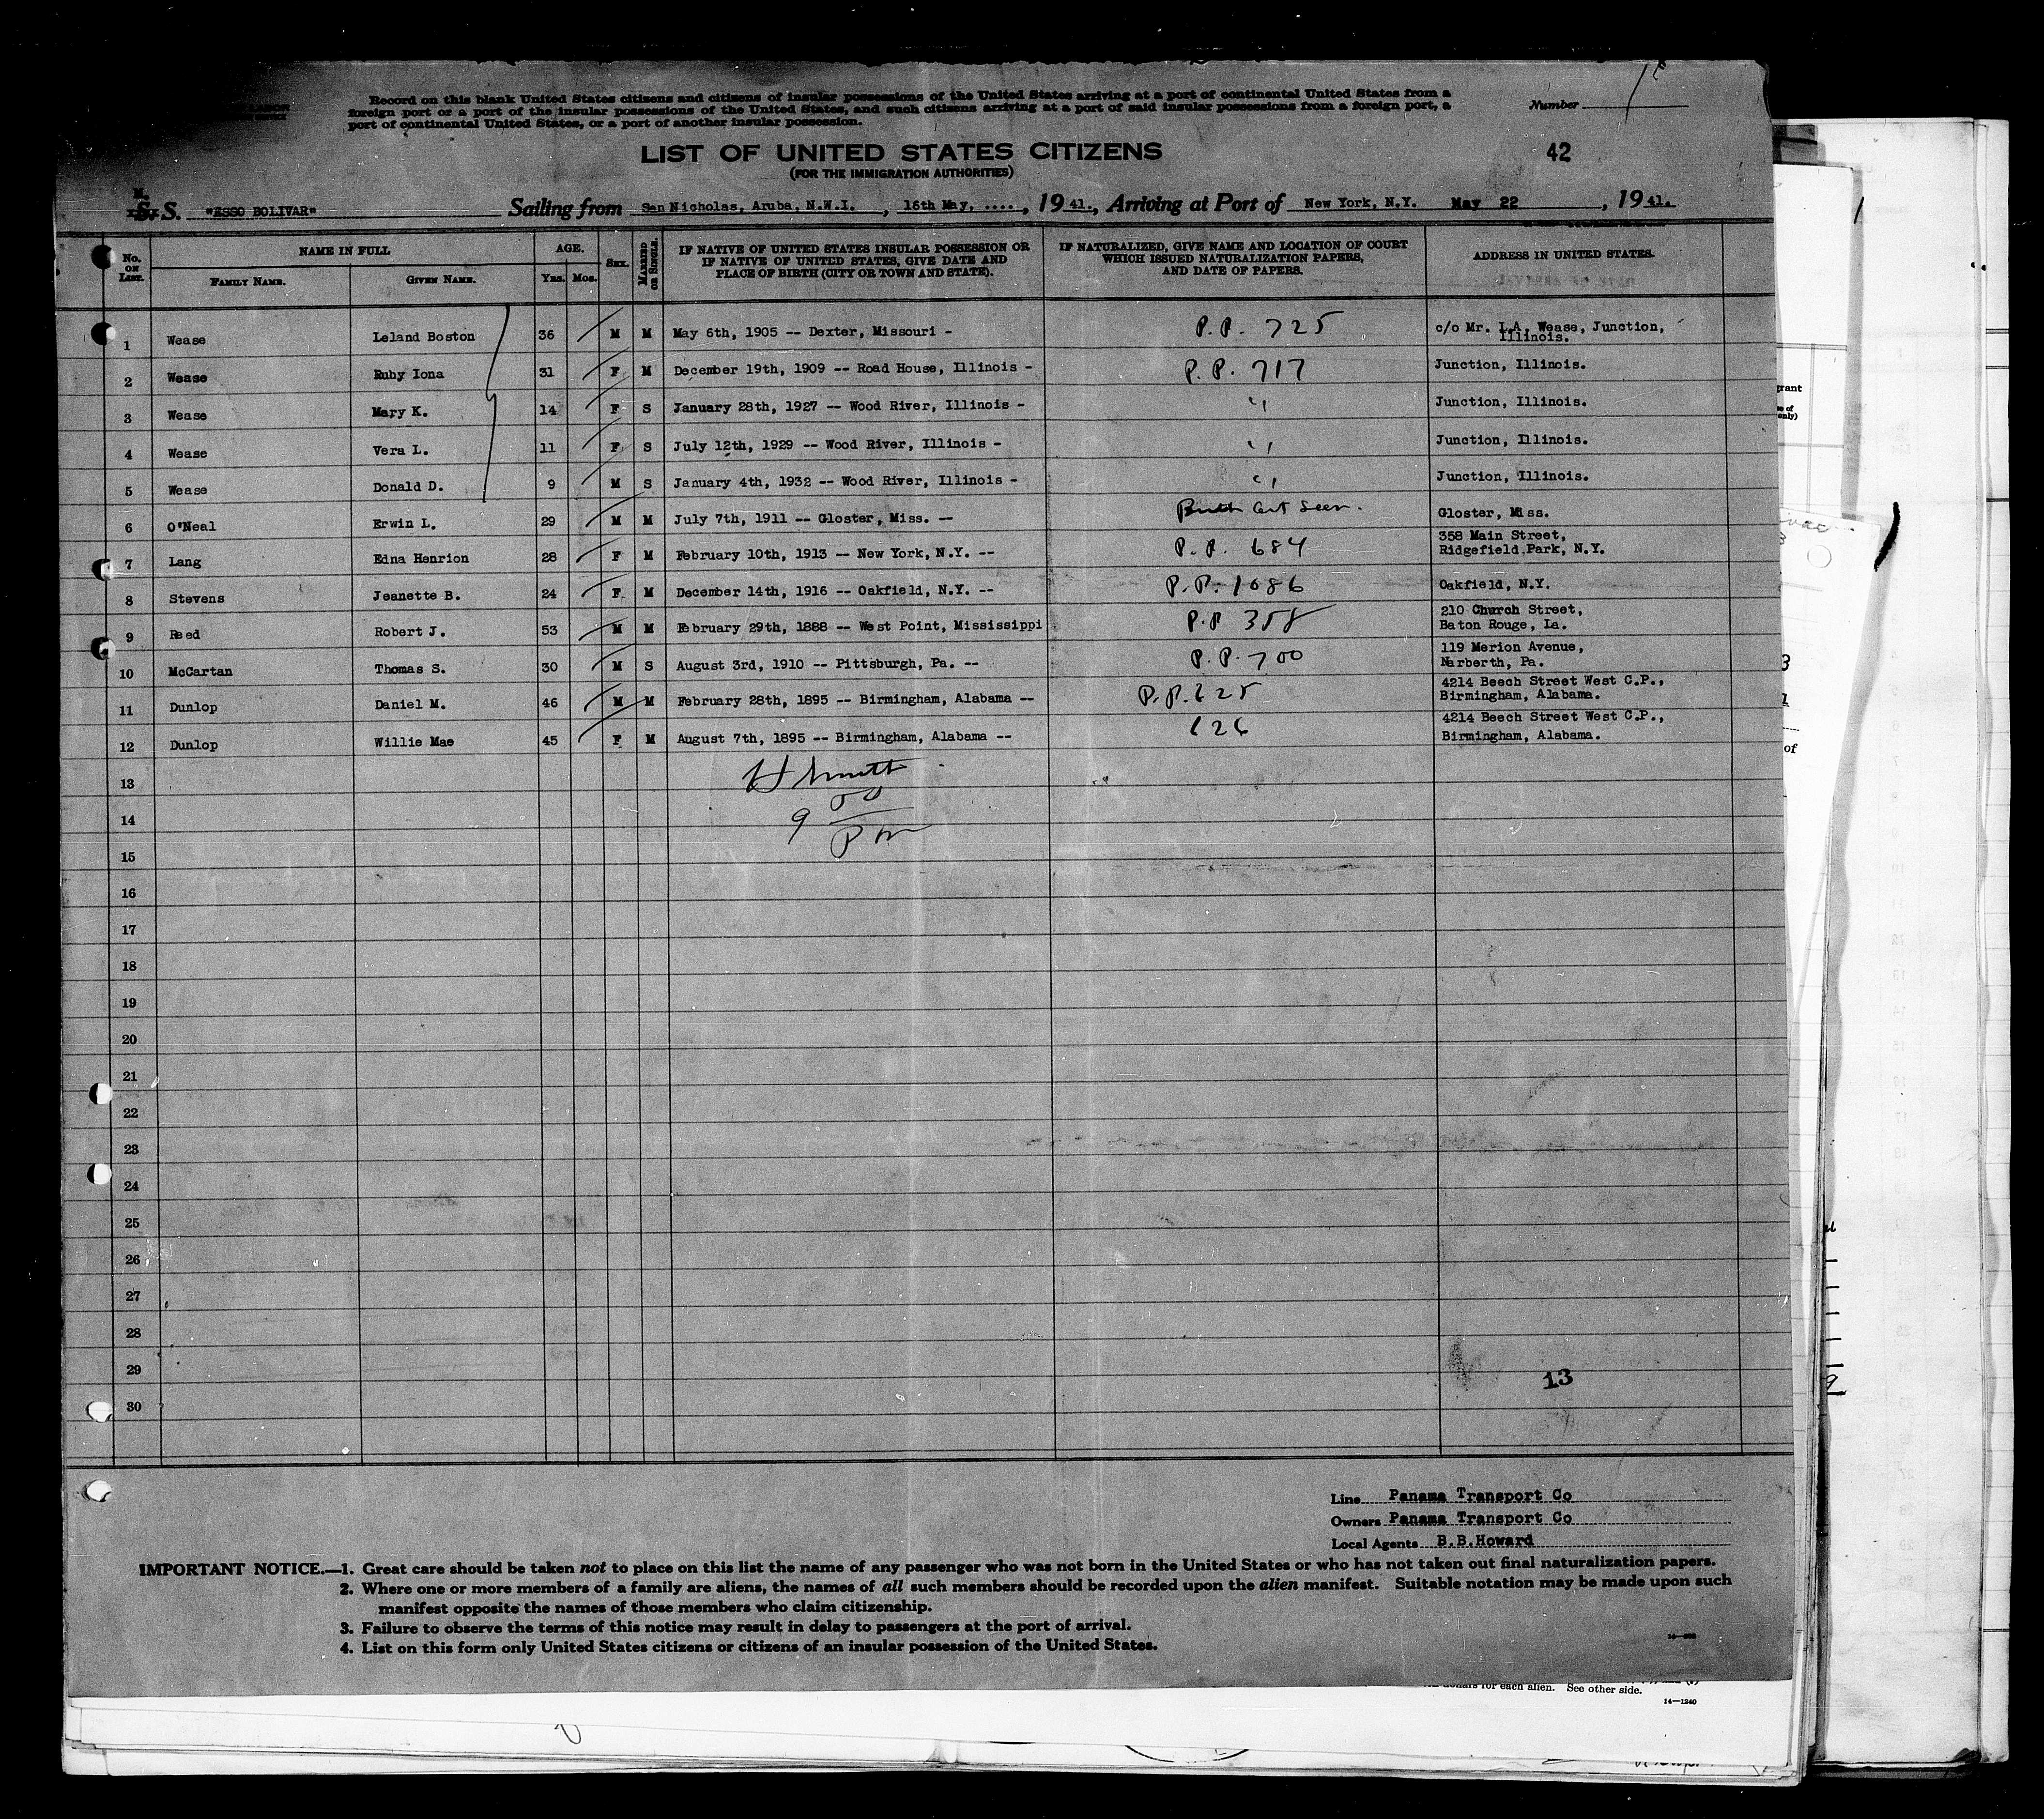 LABOR
Record on this blank United States citizens and citizens of insular possessions of the United States arriving at a port of continental United States from a
foreign port or a port of the insular possessions of the United States, and such citizens arriving at a port of said insular possessions from a foreign port, a
port of continental United States, or a port of another insular possession.
Number
LIST OF UNITED STATES CITIZENS
42
(FOR THE IMMIGRATION AUTHORITIES)
M.
S. S. "ESSO BOLIVAR" Sailing from San Nicholas, Aruba, N.W.I. , 16th May, .... , 19 41., Arriving at Port of New York, N.Y. May 22 , 19 41.
No. ON LIST. NAME IN FULL AGE. SEX. MARRIED OR SINGLE. IF NATIVE OF UNITED STATES INSULAR POSSESSION OR IF NATIVE OF UNITED STATES, GIVE DATE AND PLACE OF BIRTH (CITY OR TOWN AND STATE). IF NATURALIZED, GIVE NAME AND LOCATION OF COURT WHICH ISSUED NATURALIZATION PAPERS, AND DATE OF PAPERS. ADDRESS IN UNITED STATES.
FAMILY NAME. GIVEN NAME. YRS. MOS.
1 Wease Leland Boston 36 M M May 6th, 1905 -- Dexter, Missouri - P.P. 725 c/o Mr. I.A. Wease, Junction,
Illinois.
2 Wease Ruby Iona 31 F M December 19th, 1909 -- Road House, Illinois - P.P. 717 Junction, Illinois.
3 Wease Mary K. 14 F S January 28th, 1927 -- Wood River, Illinois - " Junction, Illinois.
4 Wease Vera L. 11 F S July 12th, 1929 -- Wood River, Illinois - " Junction, Illinois.
5 Wease Donald D. 9 M S January 4th, 1932 -- Wood River, Illinois - " Junction, Illinois.
6 O'Neal Erwin L. 29 M M July 7th, 1911 -- Gloster, Miss. -- Birth Cert Seen. Gloster, Miss.
7 Lang Edna Henrion 28 F M February 10th, 1913 -- New York, N.Y. -- P.P. 684 358 Main Street,
Ridgefield Park, N.Y.
8 Stevens Jeanette B. 24 F M December 14th, 1916 -- Oakfield, N.Y. -- P.P. 1086 Oakfield, N.Y.
9 Reed Robert J. 53 M M February 29th, 1888 -- West Point, Mississippi P.P 358 210 Church Street,
Baton Rouge, La.
10 McCartan Thomas S. 30 M S August 3rd, 1910 -- Pittsburgh, Pa. -- P.P. 700 119 Merion Avenue,
Narberth, Pa.
11 Dunlop Daniel M. 46 M M February 28th, 1895 -- Birmingham, Alabama -- P.P. 625 4214 Beech Street West C.P.,
Birmingham, Alabama.
12 Dunlop Willie Mae 45 F M August 7th, 1895 -- Birmingham, Alabama -- 626 4214 Beech Street West C.P.,
Birmingham, Alabama.
13
14 9 00
Pm
15
16
17
18
19
20
21
22
23
24
25
26
27
28
29 13
30
Line Panama Transport Co
Owners Panama Transport Co
Local Agents B.B.Howard
IMPORTANT NOTICE.—1. Great care should be taken not to place on this list the name of any passenger who was not born in the United States or who has not taken out final naturalization papers.
2. Where one or more members of a family are aliens, the names of all such members should be recorded upon the alien manifest. Suitable notation may be made upon such
manifest opposite the names of those members who claim citizenship.
3. Failure to observe the terms of this notice may result in delay to passengers at the port of arrival.
4. List on this form only United States citizens or citizens of an insular possession of the United States.
dollars for each alien. See other side.
14—1240